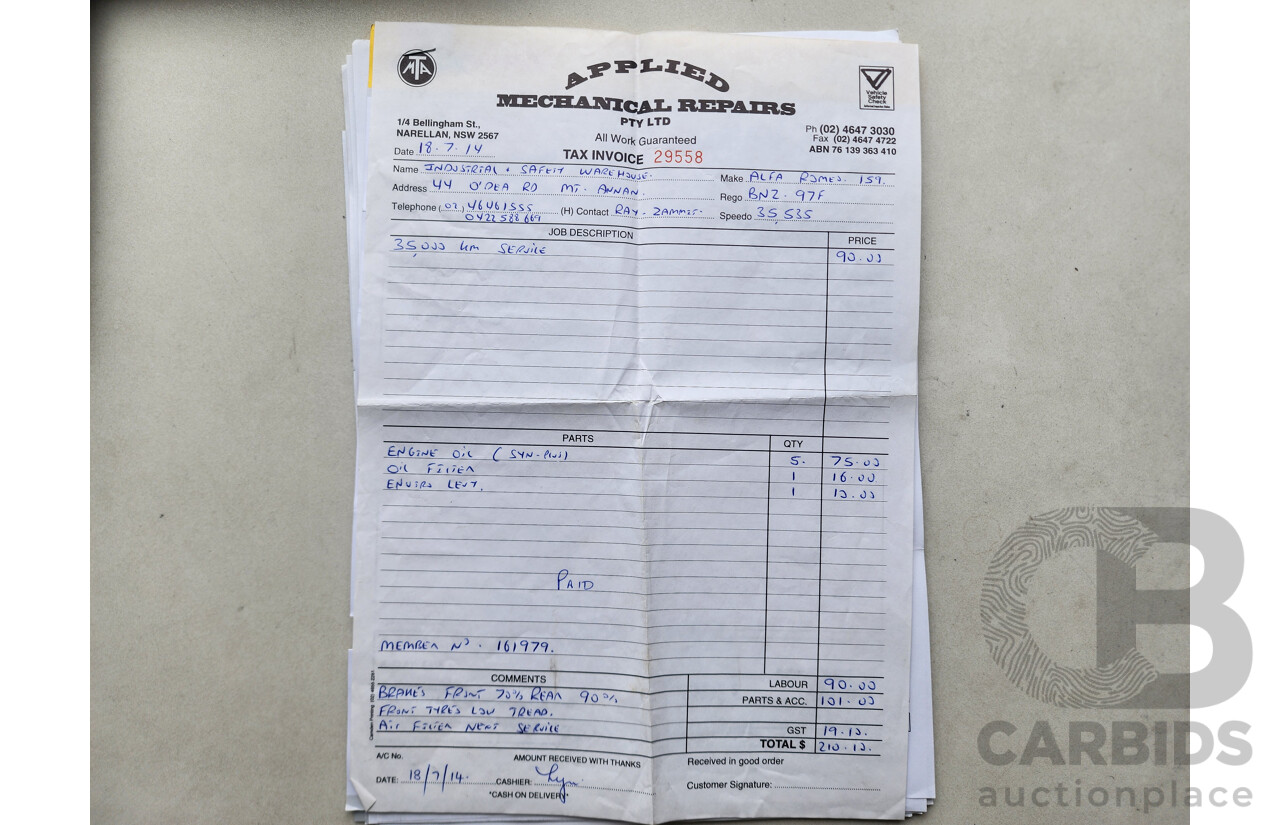 MTA
APPLIED
MECHANICAL REPAIRS
PTY LTD
Vehicle Safety Check
1/4 Bellingham St.,
NARELLAN, NSW 2567
All Work Guaranteed
Ph (02) 4647 3030
Fax (02) 4647 4722
ABN 76 139 363 410
Date 18.7.14
TAX INVOICE 29558
Name INDUSTRIAL SAFETY WAREHOUSE. Make ALFA ROMEO. 159.
Address 44 O'DEA RD MT. ANNAN. Rego BNZ. 97F
Telephone (02) 46461555 (H) Contact RAY. ZAMMIT. Speedo 35,535
0422 538 669
JOB DESCRIPTION PRICE
35,000 km SERVICE 90.00
PARTS QTY
ENGINE OIL (SYN-PLUS) 5. 75.00
OIL FILTER 1 16.00
ENVIRO LEVY. 1 10.00
PAID
MEMBER No. 161979.
COMMENTS LABOUR 90.00
BRAKES FRONT 70% REAR 90% PARTS & ACC. 101.00
FRONT TYRES LOW TREAD.
AIR FILTER NEXT SERVICE GST 19.10.
TOTAL $ 210.10.
A/C No. AMOUNT RECEIVED WITH THANKS Received in good order
DATE: 18/7/14. CASHIER: Customer Signature:
*CASH ON DELIVERY*
CB
CARBIDS
auctionplace